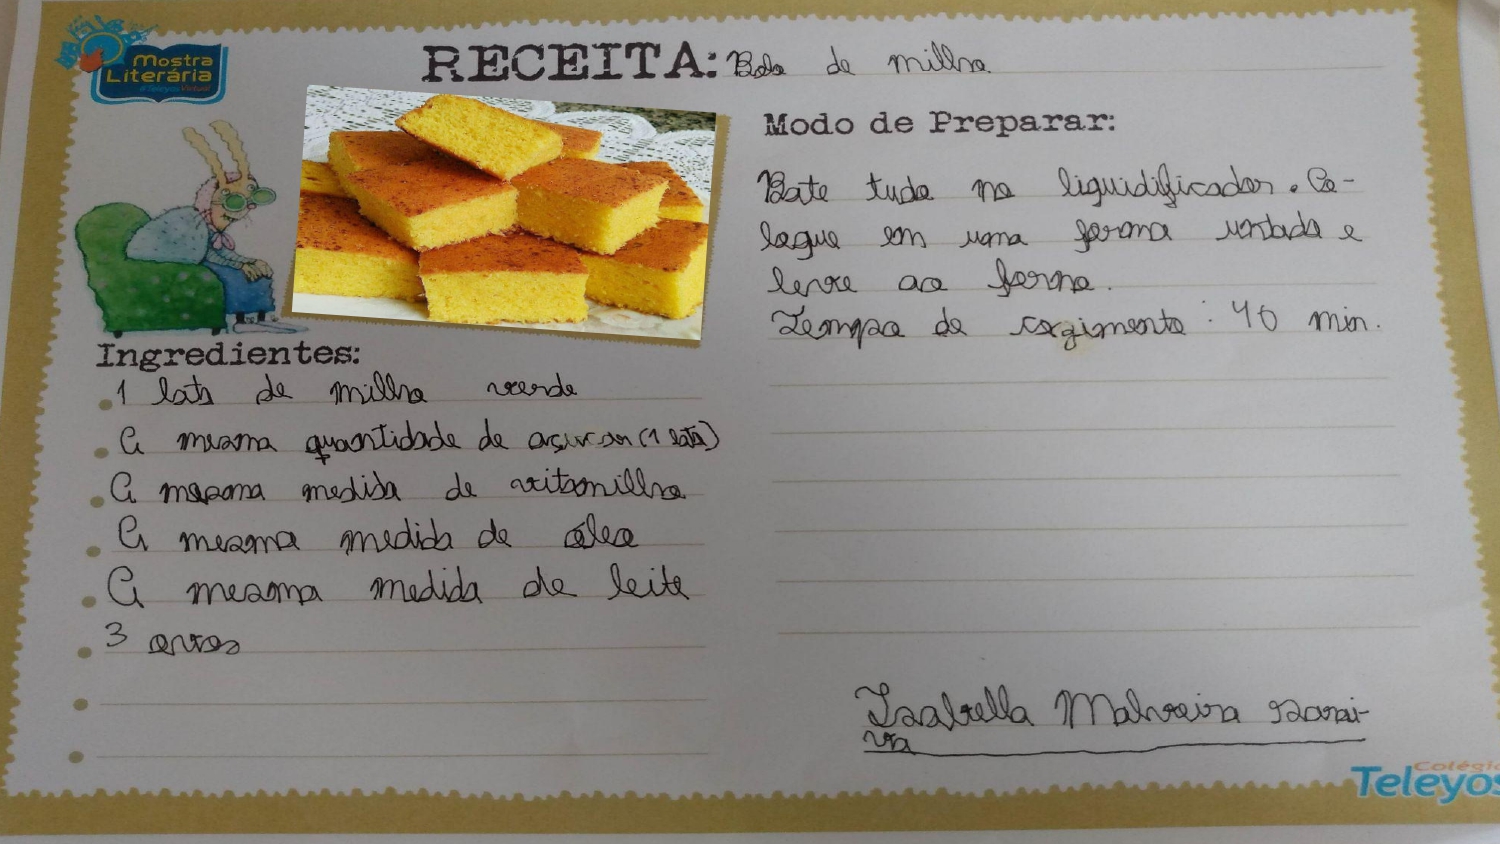 Mostra
Literária
#Teleyos Virtual
RECEITA: Bolo de milho
Ingredientes:
1 lata de milho verde
A mesma quantidade de açúcar (1 lata)
A mesma medida de vitamilho
A mesma medida de óleo
A mesma medida de leite
3 ovos
Modo de Preparar:
Bate tudo no liquidificador. Co-
loque em uma forma untada e
leve ao forno.
Tempo de cozimento: 40 min.
Izabella Malveira Sarai-
va
Colégio
Teleyos